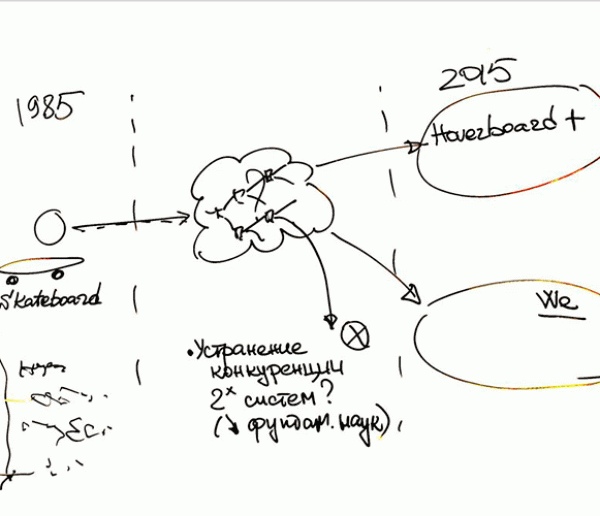 1985
2015
Hoverboard +
Skateboard
We
• Устранение
конкуренции
2х систем?
(↘ фундам. наук),